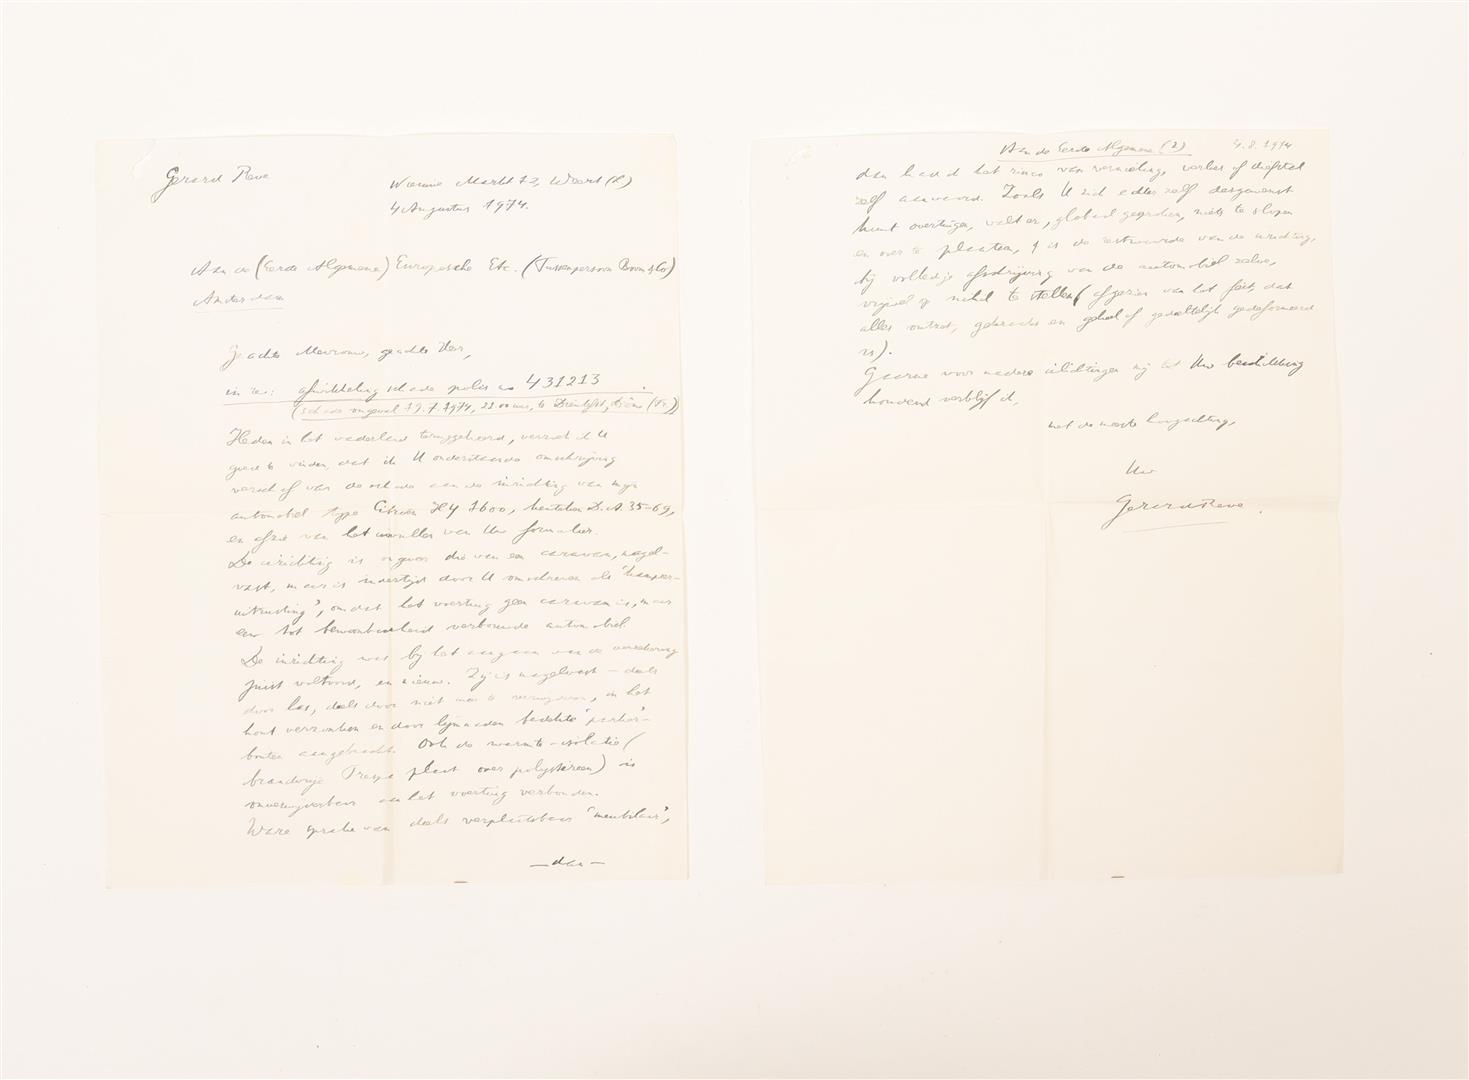 Gerard Reve
Nieuwe Markt 12, Weert (L)
4 Augustus 1974.
Aan de (Eerste Algemene) Europesche Etc. (Tussenpersoon Boom & Co)
Amsterdam
Geachte Mevrouw, geachte Heer,
in re: afwikkeling schade polis no 431213.
(schade ongeval 29.7.1974, 23.00 uur, te Dieulefit, Drôme (Fr.))
Heden in het vaderland teruggekeerd, verzoek ik U
goed te vinden, dat ik U onderstaande omschrijving
verschaf van de schade aan de inrichting van mijn
automobiel type Citroën HY 1600, kenteken D.A. 35-69,
en afzie van het invullen van Uw formulier.
De inrichting is ongeveer die van een caravan, nagel-
vast, maar is indertijd door U omschreven als 'kampeer-
uitrusting', omdat het voertuig geen caravan is, maar
een tot bewoonbaarheid verbouwde automobiel.
De inrichting was bij het aangaan van de verzekering
juist voltooid, en nieuw. Zij is nagelvast – deels
door las, deels door niet meer te verwijderen, in het
hout verzonken en door lijmnaden bedekte 'parker'-
bouten aangebracht. Ook de warmte-isolatie (
brandvrije Trespa plaat over polystireen) is
onverwijderbaar aan het voertuig verbonden.
Ware sprake van deels verplaatsbaar 'meubilair',
– dan –
Aan de Eerste Algemene (2) 4.8.1974
dan had ik het risico van vernieling, verlies of diefstal
zelf aanvaard. Zoals U zich echter zelf desgewenst
kunt overtuigen, valt er, globaal gesproken, niets te slopen
en over te plaatsen, & is de restwaarde van de inrichting,
bij volledige afschrijving van de automobiel zelve,
vrijwel op nihil te stellen (afgezien van het feit, dat
alles ontzet, gebroken en geheel of gedeeltelijk gedeformeerd
is).
Gaarne voor nadere inlichtingen mij tot Uw beschikking
houdend verblijf ik,
met de meeste hoogachting,
Uw
Gerard Reve.